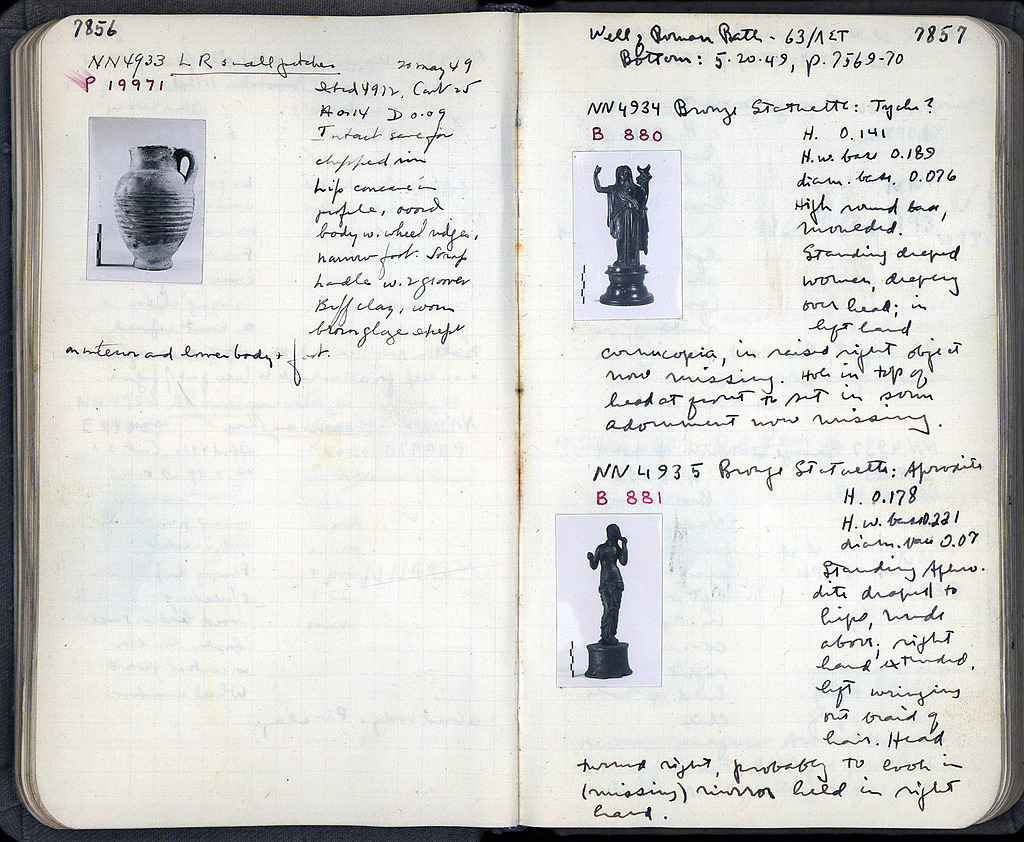 7856
NN4933 L R small pitcher 20 May 49
P 19971
Sted 4912, Cont 25
H 0.14 D 0.09
Intact save for
chipped rim
Lip concave in
profile, ovoid
body w. wheel ridges,
narrow foot. Strap
handle w. 2 grooves
Buff clay, worn
brown glaze except
on interior and lower body + foot.
7857
Well, Roman Bath - 63/ΛΣΤ
Bottom: 5.20.49, p. 7569-70
NN4934 Bronze Statuette: Tyche?
B 880
H. 0.141
H.w. base 0.189
diam. base, 0.076
High round base,
moulded.
Standing draped
woman, drapery
over head; in
left hand
cornucopia, in raised right object
now missing. Hole in top of
head at front to set in some
adornment now missing.
NN4935 Bronze Statuette: Aphrodite
B 881
H. 0.178
H.w. base 0.221
diam. base 0.07
Standing Aphro-
dite draped to
hips, nude
above; right
hand extended,
left wringing
out braid of
hair. Head
turned right, probably to look in
(missing) mirror held in right
hand.